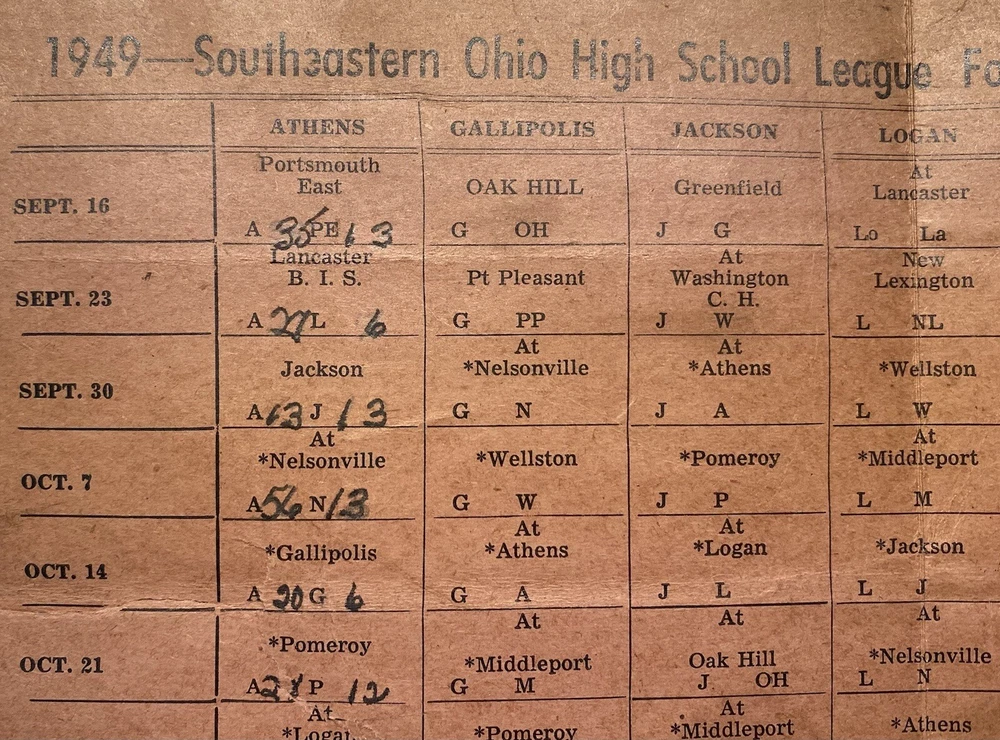 1949—Southeastern Ohio High School League
ATHENS GALLIPOLIS JACKSON LOGAN
SEPT. 16
Portsmouth
East
A 35 PE 13
OAK HILL
G OH
Greenfield
J G
At
Lancaster
Lo La
SEPT. 23
Lancaster
B. I. S.
A 27 L 6
Pt Pleasant
G PP
At
Washington
C. H.
J W
New
Lexington
L NL
SEPT. 30
Jackson
A 13 J 13
At
*Nelsonville
G N
At
*Athens
J A
*Wellston
L W
OCT. 7
At
*Nelsonville
A 56 N 13
*Wellston
G W
*Pomeroy
J P
At
*Middleport
L M
OCT. 14
*Gallipolis
A 20 G 6
At
*Athens
G A
At
*Logan
J L
*Jackson
L J
OCT. 21
*Pomeroy
A P 12
At
*Middleport
G M
At
Oak Hill
J. OH
At
*Nelsonville
L N
At
*Logan
*Pomeroy
At
*Middleport
*Athens